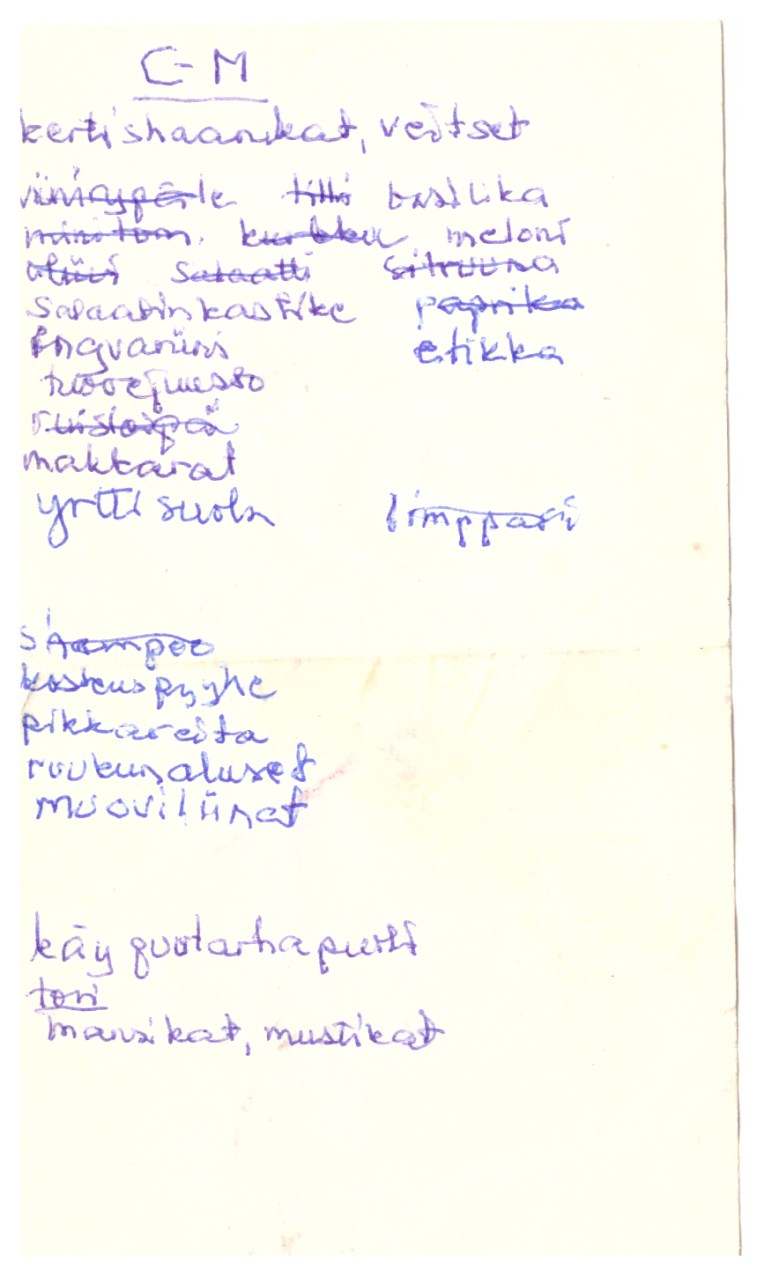 C-M
kertishaarukat, veitset
viinirypäle tilli basilika
minitom. kurkku meloni
oliivi salaatti sitruuna
salaatinkastike paprika
etikka
tuorejuusto
ruisleipä
makkarat
yrttisuola limppari
shampoo
kosteuspyyhe
pikkareita
ruukunaluset
muoviliinat
käy puutarhapuoti
tori
mansikat, mustikat